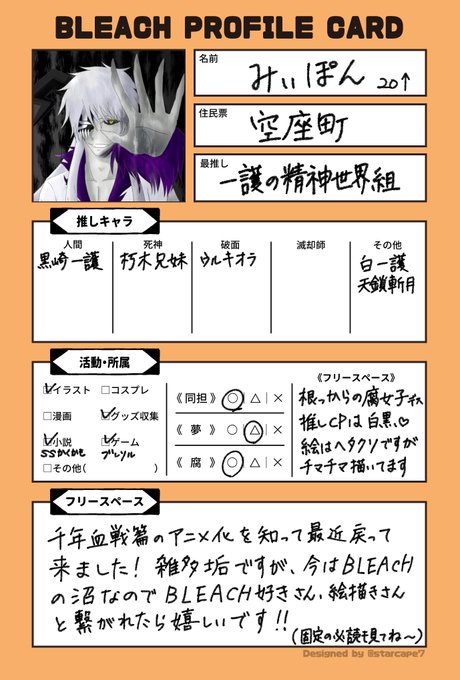 BLEACH PROFILE CARD
名前
みぃぽん 20↑
住民票
空座町
最推し
一護の精神世界組
推しキャラ
人間 死神 破面 滅却師 その他
黒崎一護 朽木兄妹 ウルキオラ 白一護
天鎖斬月
活動・所属
☑イラスト □コスプレ
□漫画 ☑グッズ収集
☑小説 ☑ゲーム
SSかくかも ブレソル
□その他( )
《同担》 ○ | △ | ×
《 夢 》 ○ | △ | ×
《 腐 》 ○ | △ | ×
《フリースペース》
根っからの腐女子です
推しCPは白黒♡
絵はヘタクソですが
チマチマ描いてます
フリースペース
千年血戦篇のアニメ化を知って最近戻って
来ました! 雑多垢ですが、今はBLEACH
の沼なのでBLEACH好きさん、絵描きさん
と繋がれたら嬉しいです!!
(固定の必読も見てね〜)
Designed by @starcape7